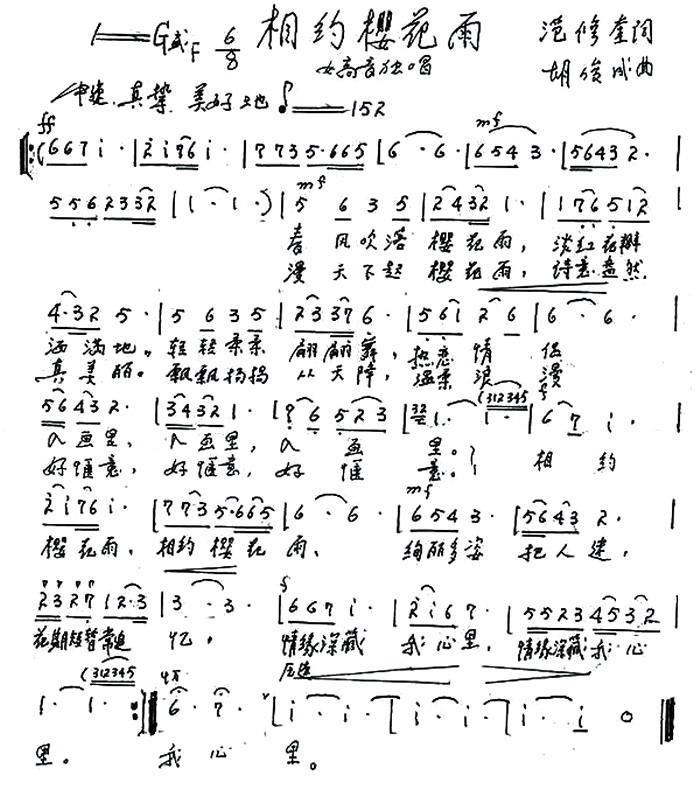 1=G或F 6/8 相约樱花雨 范修奎词
女高音独唱 胡俊成曲
中速、真挚 美好地 ♪=152
ff mf
(6671·|2176 1·|773 5·665|6· 6·|654 3·|5643 2·|
mf
556 2332|1· 1·)|5 6 3 5|2432 1·|176 512|
春 风吹落 樱花雨，淡红花瓣
漫 天下起 樱花雨，诗意盎然
4·32 5·|5 6 3 5|2337 6·|561 2 6|6· 6·|
洒满地。轻轻柔柔 翩翩舞，热恋 情 侣
真美丽。飘飘扬扬 从天降，温柔 浪 漫
(312345 f
56 43 2·|3432 1·|2 6 5 2 3|1· 1·|6 7 1·|
入画里，入画里，入 画 里。 相 约
好惬意，好惬意，好 惬 意。
mf
2176 1·|773 5·665|6· 6·|654 3·|5643 2·|
樱花雨，相约樱花 雨， 绚丽多姿 把人迷，
f
2327 12·3|3· 3·|667 1·|2167·|5523 4532|
花期短暂常追 忆。 情缘深藏 我心里，情缘深藏我心
(312345
1· 1·:|6· 7·|1· 1·|1· 1·|1· 1·|1· 1 0|
里。 我 心 里。